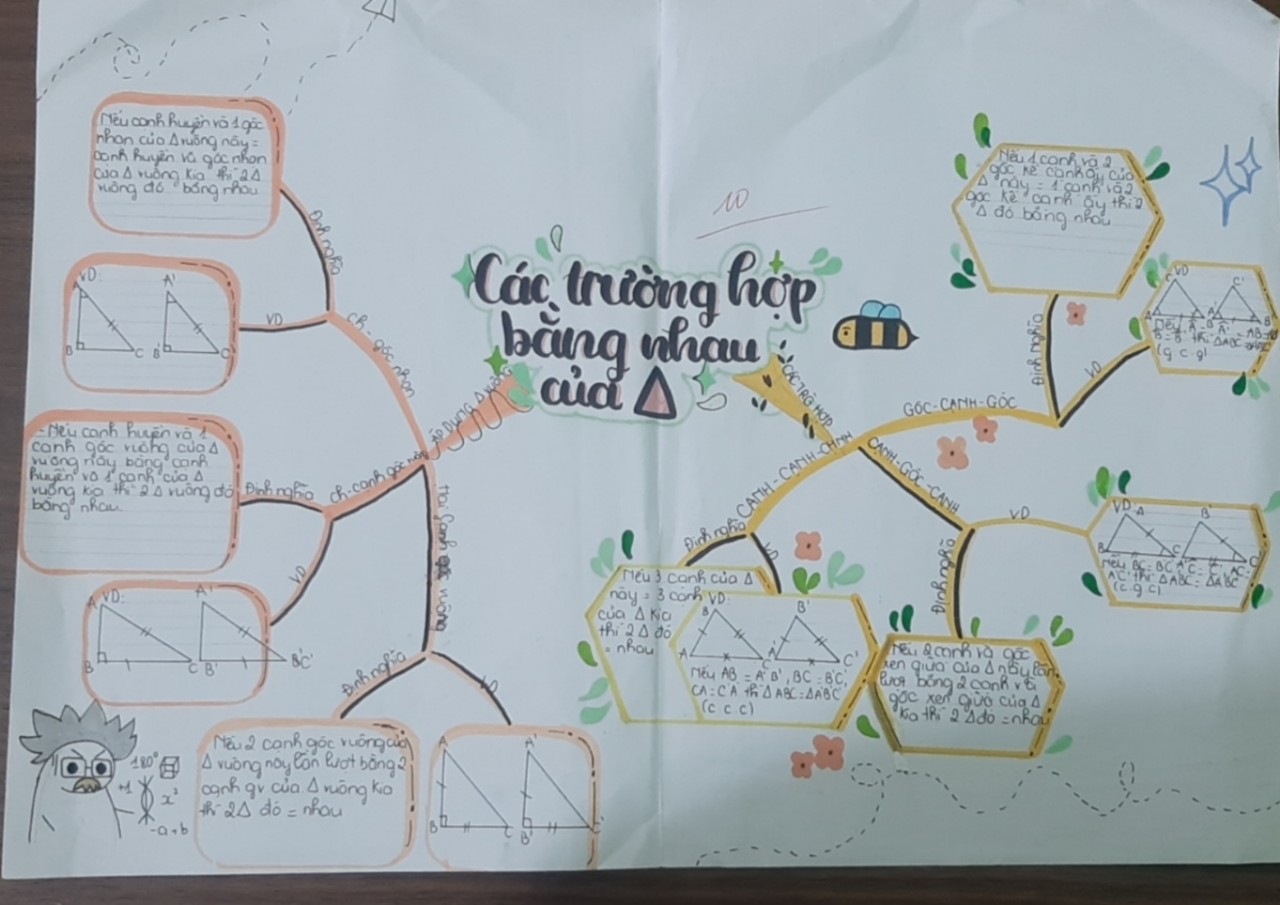 Các trường hợp
bằng nhau
của Δ
10
Nếu cạnh huyền và 1 góc
nhọn của Δ vuông này =
cạnh huyền và góc nhọn
của Δ vuông kia thì 2 Δ
vuông đó bằng nhau
Định nghĩa
VD:
A A'
B C B' C'
VD
Ch - góc nhọn
ÁP DỤNG Δ VUÔNG
- Nếu cạnh huyền và 1
cạnh góc vuông của Δ
vuông này bằng cạnh
huyền và 1 cạnh của Δ
vuông kia thì 2 Δ vuông đó
bằng nhau.
Định nghĩa
ch-cạnh góc
VD
VD:
A A'
B C B' B'C'
Hai cạnh góc vuông
Định nghĩa
VD
Nếu 2 cạnh góc vuông của
Δ vuông này lần lượt bằng 2
cạnh gv của Δ vuông kia
thì 2Δ đó = nhau
A A'
B C B' C'
180°
+1
x²
-a+b
CÁC TRG HỢP
GÓC-CẠNH-GÓC
Định nghĩa
Nếu 1 cạnh và 2
góc kề cạnh ấy của
Δ này = 1 cạnh và 2
góc kề cạnh ấy thì 2
Δ đó bằng nhau
VD
VD
C C'
A B A' B'
(g.c.g)
CẠNH-GÓC-CẠNH
VD
VD: A B'
B C C'
Nếu BC = B'C', C = C', AC =
A'C' thì Δ ABC = Δ A'B'C'
(c.g.c)
Định nghĩa
Nếu 2 cạnh và góc
xen giữa của Δ này lần
lượt bằng 2 cạnh và
góc xen giữa của Δ
kia thì 2 Δ đó = nhau
CẠNH-CẠNH-CẠNH
Định nghĩa
VD
Nếu 3 cạnh của Δ
này = 3 cạnh
của Δ kia
thì 2 Δ đó
= nhau
VD:
B B'
A C A' C'
Nếu AB = A'B', BC = B'C',
CA = C'A' thì Δ ABC = Δ A'B'C'
(c.c.c)